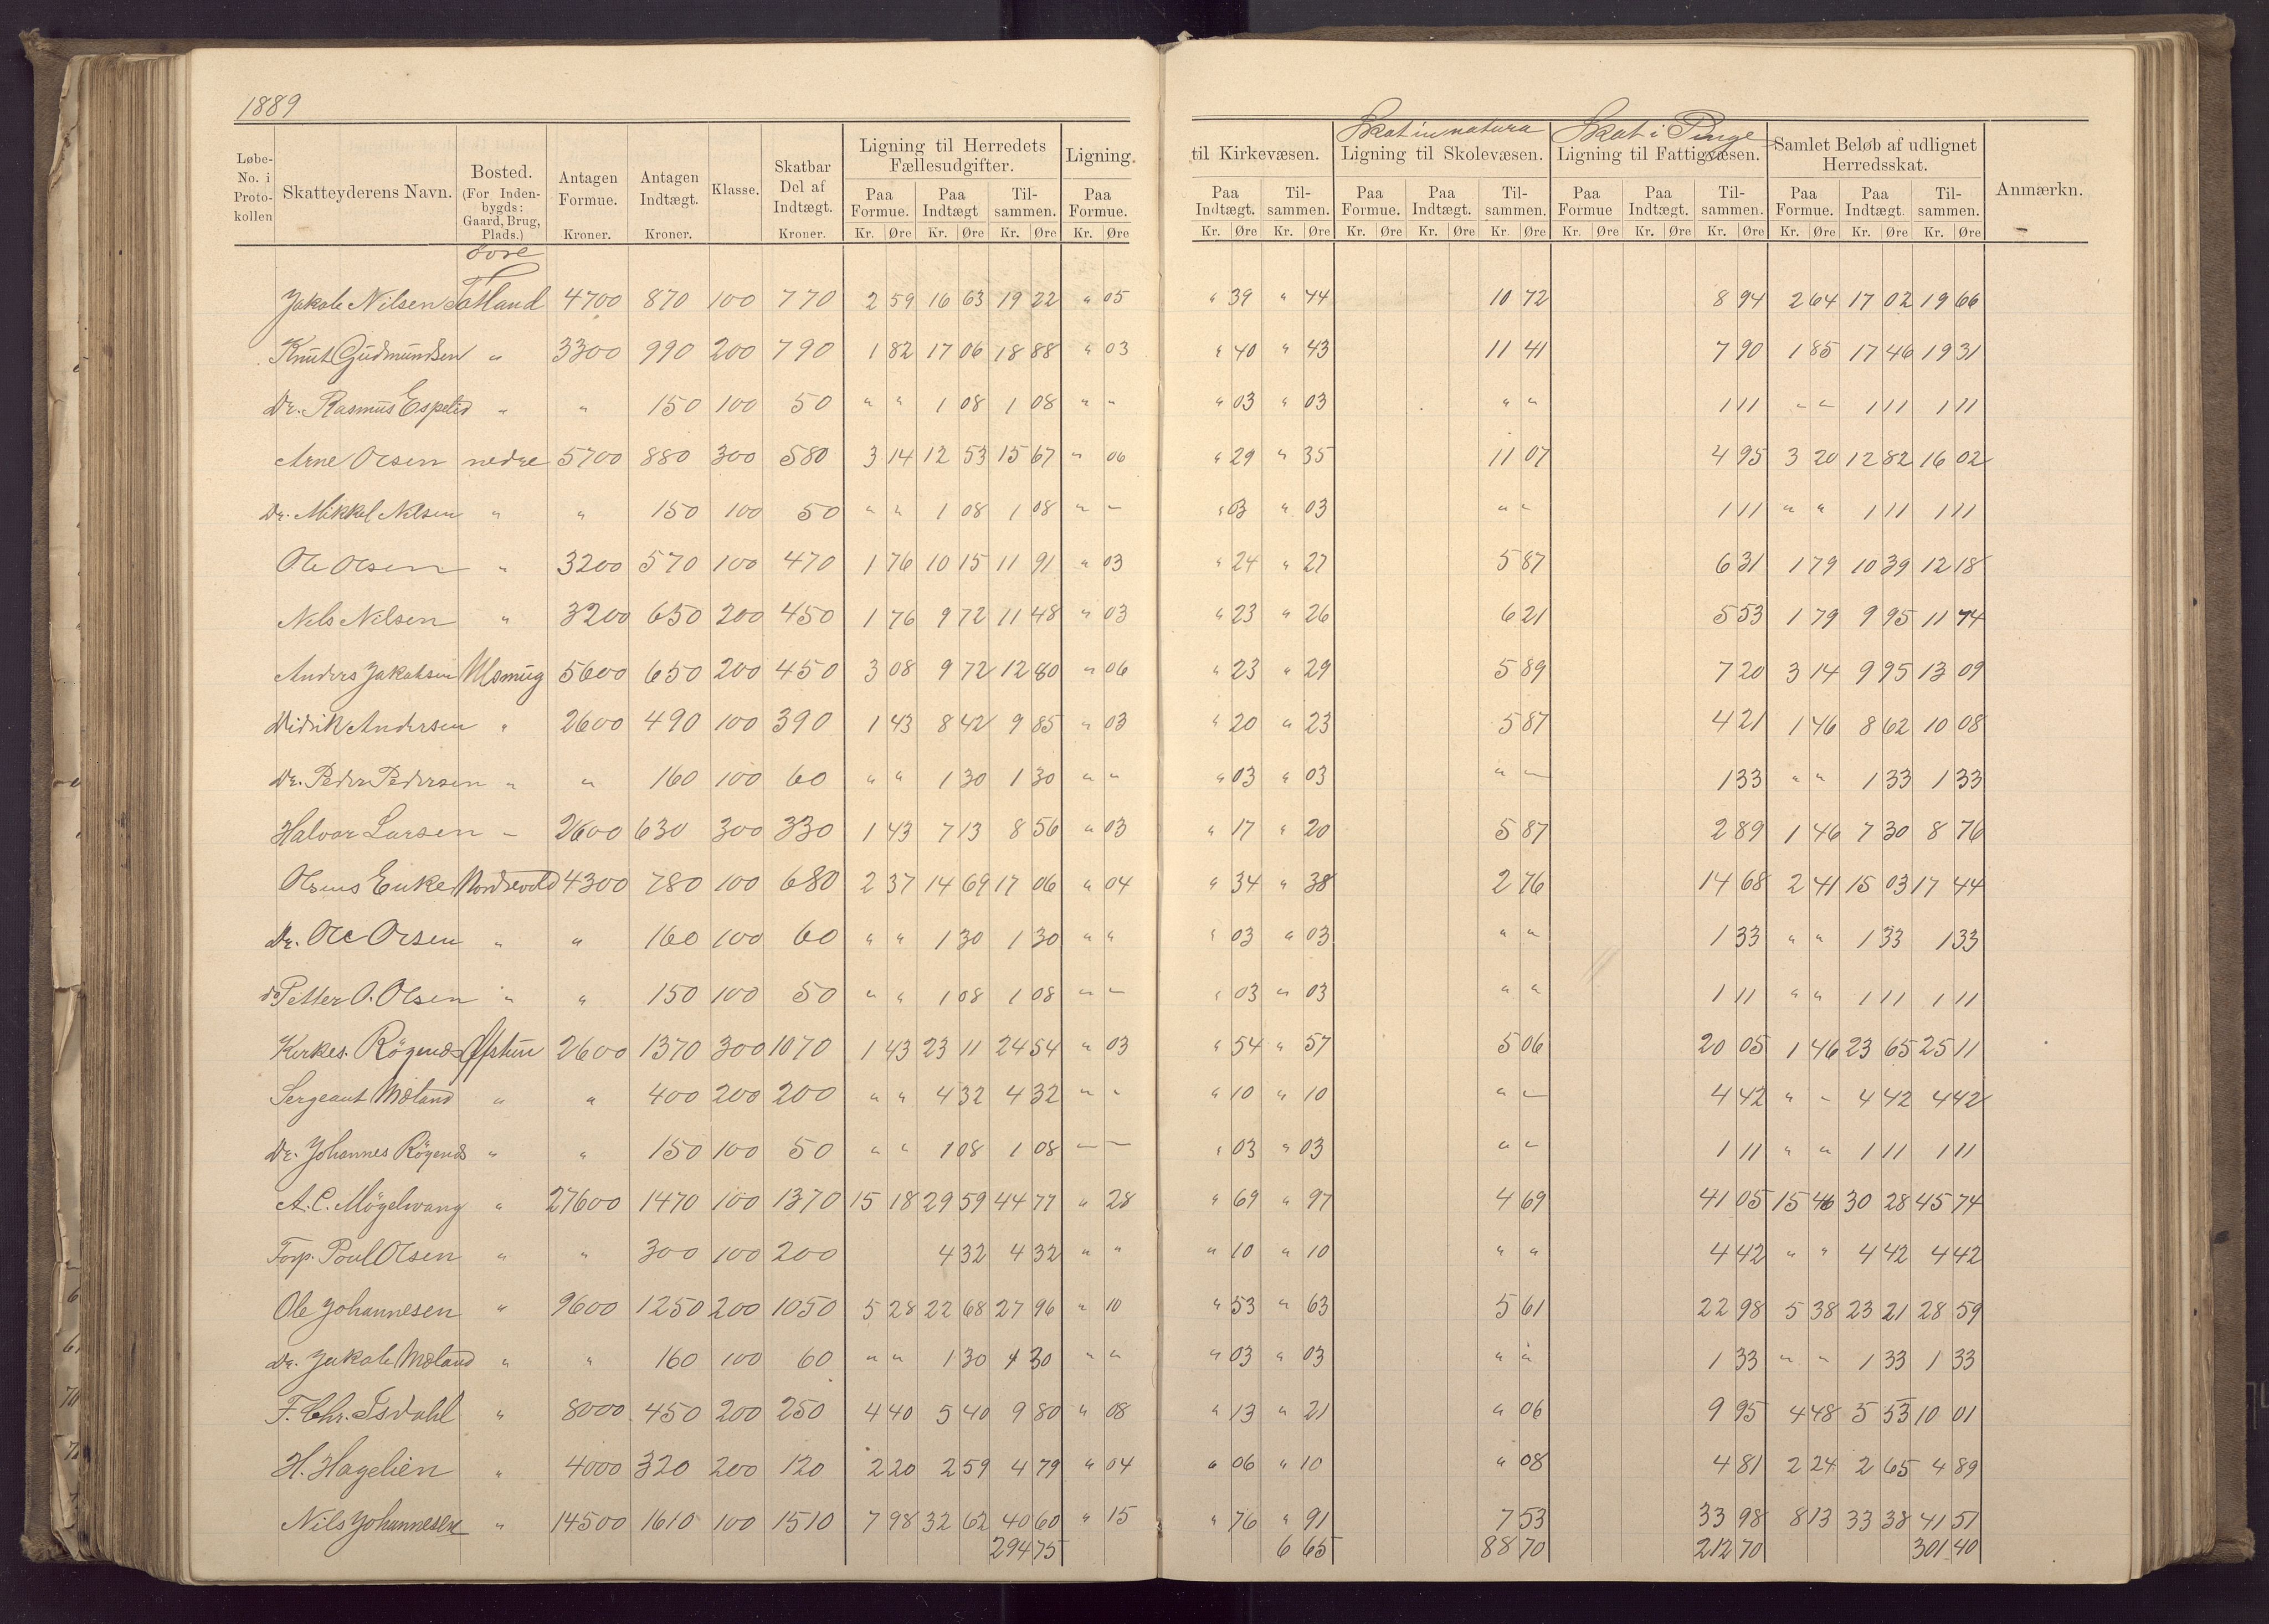 1889
Løbe-No. i Proto-kollen | Skatteyderens Navn. | Bosted. (For Inden-bygds: Gaard, Brug, Plads.) | Antagen Formue. Kroner. | Antagen Indtægt. Kroner. | Klasse. | Skatbar Del af Indtægt. Kroner. | Ligning til Herredets Fællesudgifter. Paa Formue. Kr. Øre Paa Indtægt Kr. Øre Til-sammen. Kr. Øre | Ligning. Paa Formue. Kr. Øre | til Kirkevæsen. Paa Indtægt. Kr. Øre Til-sammen. Kr. Øre | Skat in natura Ligning til Skolevæsen. Paa Formue. Kr. Øre Paa Indtægt. Kr. Øre Til-sammen. Kr. Øre | Skat i Penge Ligning til Fattigvæsen. Paa Formue Kr. Øre Paa Indtægt. Kr. Øre Til-sammen. Kr. Øre | Samlet Beløb af udlignet Herredsskat. Paa Formue. Kr. Øre Paa Indtægt. Kr. Øre Til-sammen. Kr. Øre | Anmærkn.
Jakob Nilsen Totland 4700 870 100 770 2 59 16 63 19 22 " 05 " 39 " 44 10 72 8 94 2 64 17 02 19 66
Knut Gudmundsen " 3300 990 200 790 1 82 17 06 18 88 " 03 " 40 " 43 11 41 7 90 1 85 17 46 19 31
Dr. Rasmus Espelid " " 150 100 50 " " 1 08 1 08 " " " 03 " 03 " " 1 11 " " 1 11 1 11
Arne Olsen nedre 5700 880 300 580 3 14 12 53 15 67 " 06 " 29 " 35 11 07 4 95 3 20 12 82 16 02
Dr. Mikkel Nilsen " " 150 100 50 " " 1 08 1 08 " " " 03 " 03 " " 1 11 " " 1 11 1 11
Ole Olsen " 3200 570 100 470 1 76 10 15 11 91 " 03 " 24 " 27 5 87 6 31 1 79 10 39 12 18
Nels Nilsen " 3200 650 200 450 1 76 9 72 11 48 " 03 " 23 " 26 6 21 5 53 1 79 9 95 11 74
Anders Jakobsen Ulsmug 5600 650 200 450 3 08 9 72 12 80 " 06 " 23 " 29 5 89 7 20 3 14 9 95 13 09
Didrik Andersen " 2600 490 100 390 1 43 8 42 9 85 " 03 " 20 " 23 5 87 4 21 1 46 8 62 10 08
Dr. Peder Pedersen " " 160 100 60 " " 1 30 1 30 " " " 03 " 03 " " 1 33 " " 1 33 1 33
Halvor Larsen " 2600 630 300 330 1 43 7 13 8 56 " 03 " 17 " 20 5 87 2 89 1 46 7 30 8 76
Olsens Enke Nordsevold 4300 780 100 680 2 37 14 69 17 06 " 04 " 34 " 38 2 76 14 68 2 41 15 03 17 44
Dr. Ole Olsen " " 160 100 60 " " 1 30 1 30 " " " 03 " 03 " " 1 33 " " 1 33 1 33
do Petter O. Olsen " " 150 100 50 " " 1 08 1 08 " " " 03 " 03 " " 1 11 " " 1 11 1 11
Kirkes. Rögenes 2600 1370 300 1070 1 43 23 11 24 54 " 03 " 54 " 57 5 06 20 05 1 46 23 65 25 11
Sergeant Moland " " 400 200 200 " " 4 32 4 32 " " " 10 " 10 " " 4 42 " " 4 42 4 42
Dr. Johannes Rögenes " " 150 100 50 " " 1 08 1 08 " " " 03 " 03 " " 1 11 " " 1 11 1 11
A. C. Mögelvang " 27600 1470 100 1370 15 18 29 59 44 77 " 28 " 69 " 97 4 69 41 05 15 46 30 28 45 74
Torp. Poul Olsen " " 300 100 200 4 32 4 32 " " " 10 " 10 " " 4 42 " " 4 42 4 42
Ole Johannesen " 9600 1250 200 1050 5 28 22 68 27 96 " 10 " 53 " 63 5 61 22 98 5 38 23 21 28 59
Dr. Jakob Moland " " 160 100 60 " " 1 30 1 30 " " " 03 " 03 " " 1 33 " " 1 33 1 33
F. Chr. Isdahl " 8000 450 200 250 4 40 5 40 9 80 " 08 " 13 " 21 " 06 9 95 4 48 5 53 10 01
H. Hagelien " 4000 320 200 120 2 20 2 59 4 79 " 04 " 06 " 10 " 08 4 81 2 24 2 65 4 89
Nils Johannesen " 14500 1610 100 1510 7 98 32 62 40 60 " 15 " 76 " 91 7 53 33 98 8 13 33 38 41 51
294 75 6 65 88 70 212 70 301 40